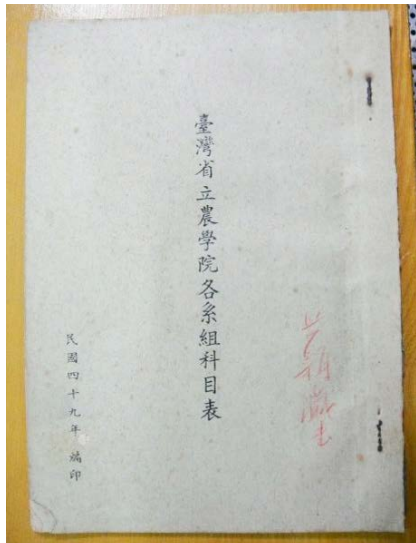 臺灣省立農學院各系組科目表
民國四十九年 編印